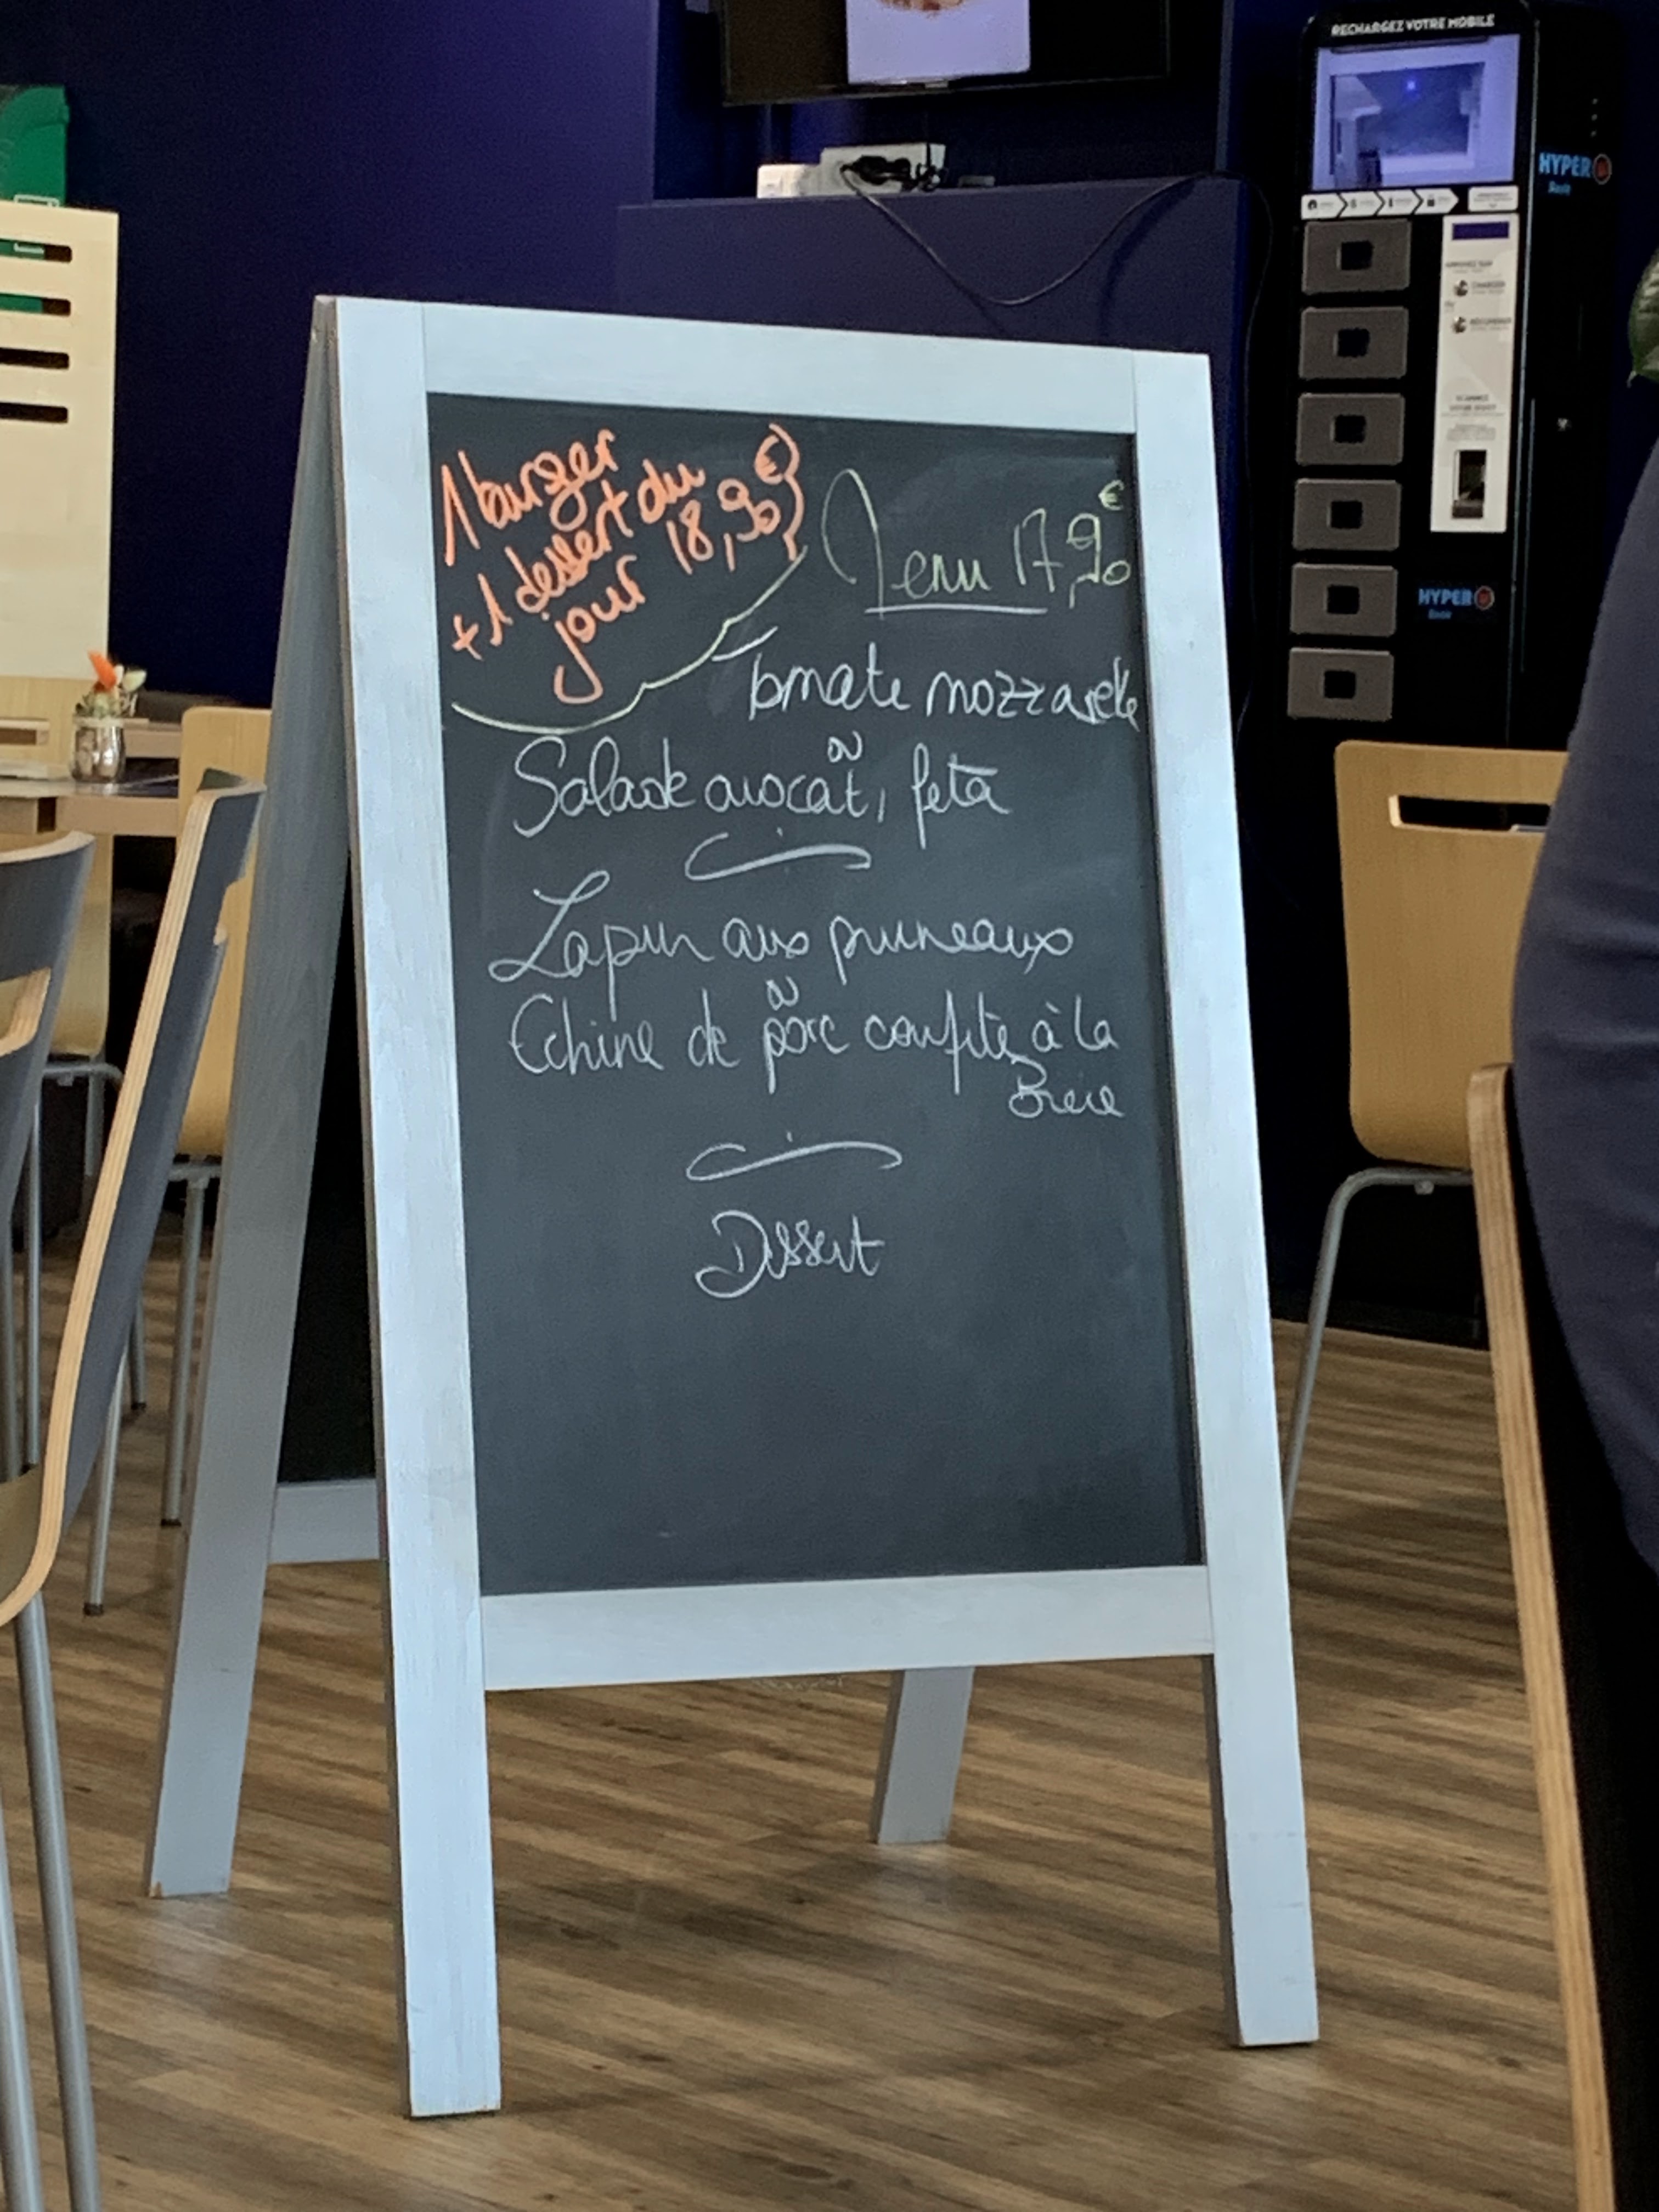 RECHARGEZ VOTRE MOBILE
HYPER
HYPER
1 burger
+ 1 dessert du
jour 18,90€
Menu 17,90€
Tomate mozzarelle
ou
Salade avocat, feta
Lapin aux pruneaux
ou
Echine de porc confite à la
Bière
Dessert